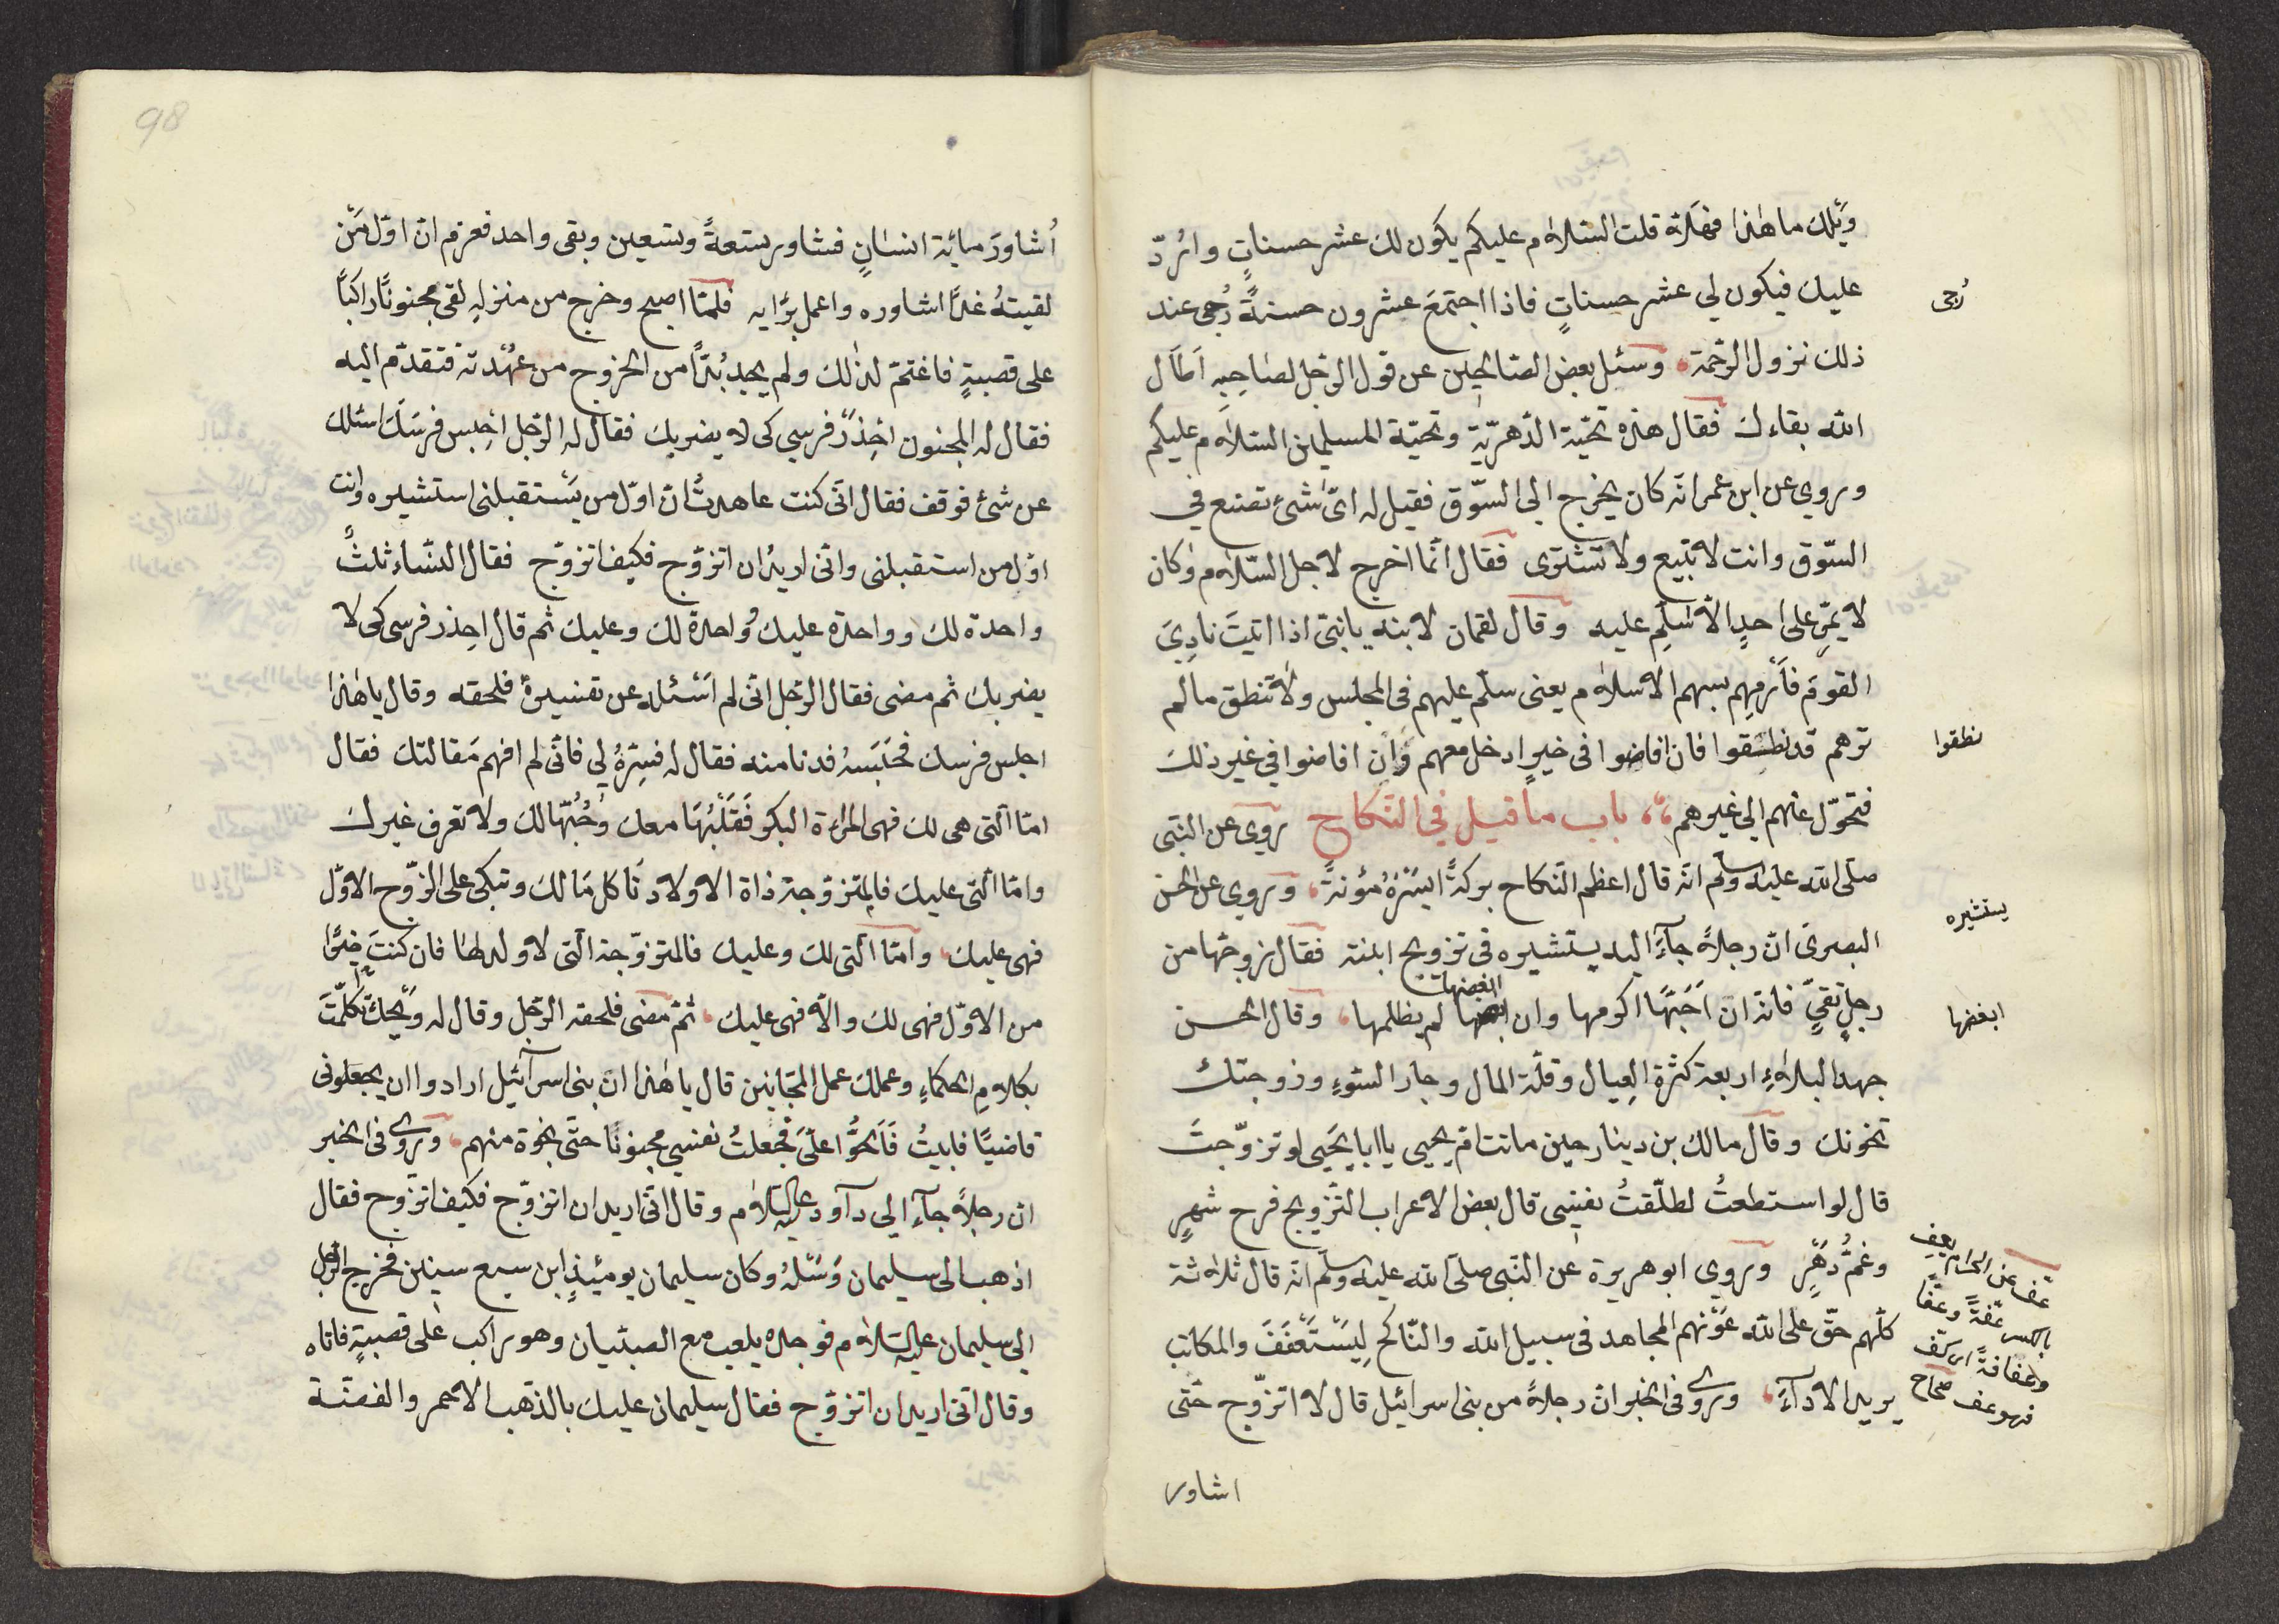 ويلك ما هٰذا فهلّا قلت السّلام عليكم يكون لك عشر حسناتٍ واردّ
عليك فيكون لي عشر حسناتٍ فاذا اجتمعَ عشرون حسنةً رُجى عند
رُجى
ذلك نزول الرّحمة وسئل بعض الصّالحين عن قول الرّجل لصَاحِبِهِ اَطاَل
الله بقاءك فقال هذه تحيّة الدّهريّة وتحيّة المسلمين السّلام عليكم
وروي عن ابن عمر انّه كان يخرج الى السّوق فقيل له ايّ شئ تصنع في
السّوق وانت لا تبيع ولا تشترى فقال انّما اخرج لاجل السّلام وكان
لا يمرّ على احدٍ الّا سَلّم عليه وقال لقمان لابنه يا بنيّ اذا اتيتَ نادِيَ
القوم فَأرمِهِم بسهم الاسلام يعنى سلّم عليهم فى المجلس ولا تنطق مالم
ترهم قد نطقوا فان افاضوا فى خيرٍ ادخل معهم وَان افاضوا في غير ذلك
نطقوا
فتحوّل عنهم الى غيرهم باب ما قيل في النّكاح روي عن النّبى
صلّى الله عليه وسلّم انّه قال اعظم النّكاح بركةً ايسَرُهُ مؤنةً وروي عن الحسن
البصرىّ انّ رجلاً جآءَ اليه يستشيره فى تزويج ابنته فقال زوجّها من
يستشيره
رجلٍ تقيّ فانّه ان اَحَبّهَا اكرمها وان ابغضها لم يظلمها وقال الحسن
ابغضها
جهد البلاءِ اربعة كثرة العِيال وقلّة المال وجار السّوءِ وزوجتك
تخونك وقال مالك بن دينار حين ماتت امّ يحيى يا ابا يحَيى لو تزوّجتَ
قال لو استطعتُ لطلّقتُ نفسى قال بعض الاعراب التّزويج فرح شهرٍ
وغمُّ دَهْرٍ وروي ابو هريرة عن النّبى صلّى الله عليه وسلّم انّه قال ثلاثة
كلّهم حقّ على الله عَوْنهم المجاهد فى سبيل الله والنّاكح لِيَسْتَعْفَفَ والمكاتب
يريد الادآءَ وروى فى الخبر انّ رجلاً من بنى اسرائيل قال لا اتزوّج حتّى
عفّ عن الحرام يعِف
بالكسر عفّةً وعفًّا
وعفافةً اى كفّ
فهو عف صحاح
اشاور
98
اُشاورَ مائة انسانٍ فشاور تسعةً وتسعين وبقى واحد فعزم انّ اوّل مَن
لقيتهُ غدًا اشاوره واعمل برَأيه فلمّا اصبح وخرج من منزلهِ لقى مجنونًا راكبًا
على قصبةٍ فاغتمّ لذٰلك ولم يجد بُدًّا من الخروج من عهْدته فتقدّم اليه
فقال له المجنون احْذِرْ فرسي كى لا يضربك فقال له الرّجل احْبِس فرسَك اسئلك
عن شئ فوقف فقال انّى كنت عاهدتُ انّ اوّل من يَستقبلنى استشيره وانت
اوّل من استقبلنى وانّى اريدُ ان اتزوّج فكيف اتزوّج فقال النّساء ثلثٌ
واحدة لك وواحدة عليك وواحدة لك وعليك ثم قال احذر فرسى كى لا
يضربك ثم مضى فقال الرّجل انّى لم اَسْئله عن تفسيرهُ فلحقه وقال يا هٰذا
احبس فرسك فحَبَسَهُ فدنا منه فقال له فَسِّرْهُ لى فانّى لم افهم مَقالتك فقال
امّا الّتى هى لك فهى المرءة البكر فَقَلْبُهَا معك وَحُبُّها لك ولا تعرف غيرك
وامّا الّتى عليك فالمتزوّجة ذاة الاولاد تأكل مَالك وتبكى على الزّوج الاوّل
فهى عليك وامّا الّتى لك وعليك فالمتزوّجة الّتى لا ولد لها فان كنتَ خيرًا
من الاوّل فهى لك والّا فهى عليك ثمّ مَضى فلحقه الرّجل وقال له وَيْحك تكلّمتَ
بكلامِ الحكماءِ وعملك عمل المجَانين قال يا هٰذا انّ بنى اسرآئيل ارادوا ان يجعلونى
قاضيًا فابيتُ فَاَلحُّوا علىّ فجعلتُ نفسى مجنونًا حتّى نجوة منهم وروى فى الخبر
ان رجلاً جآءَ الى دآود عليه السّلام وقال انّى اريد ان اتزوّج فكيف اتزوج فقال
اذهب الى سليمان وَسْئلهُ وكان سليمان يومئذٍ ابن سبع سنين فخرج الرّجل
الى سليمان عليه السّلام فوجده يلعب مع الصبْيان وهو راكب على قصبةٍ فاتاه
وقال انّى اريد ان اتزوّج فقال سليمان عليك بالذّهب الاحمر والفضّة